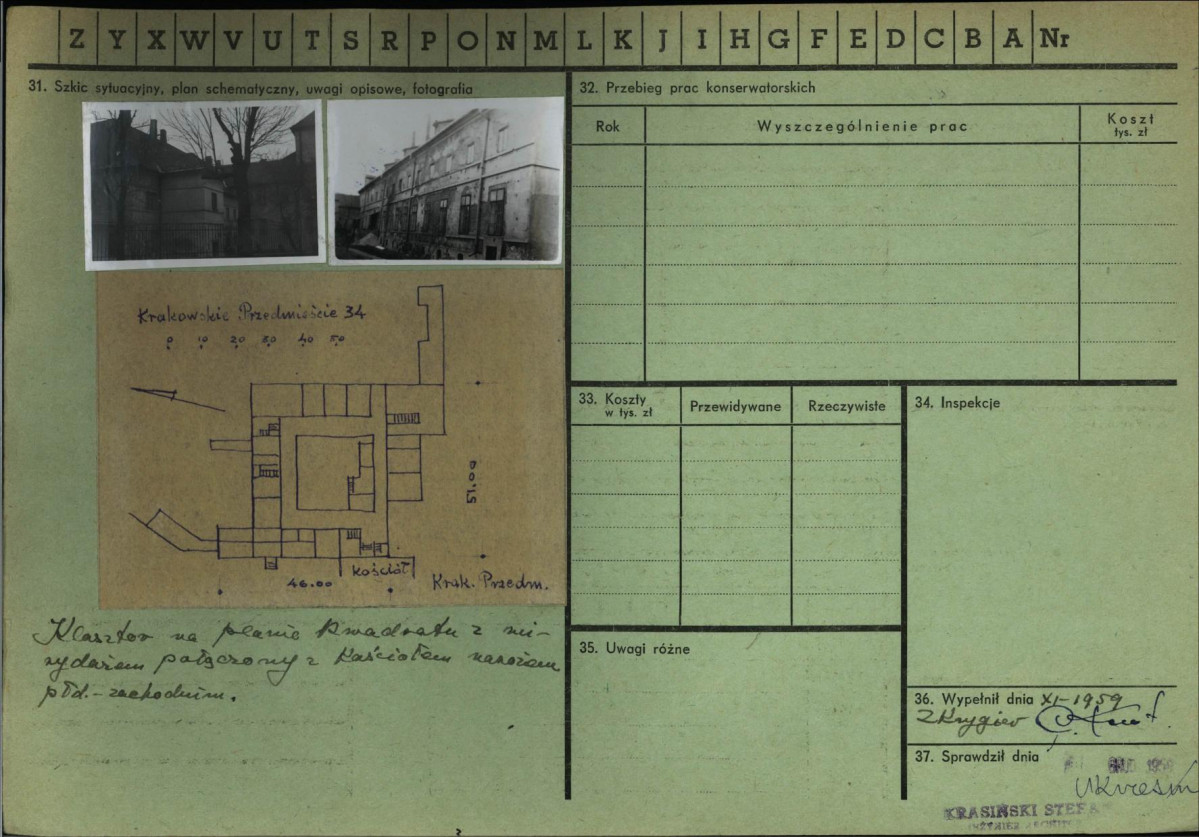 Z Y X W V U T S R P O N M L K J I H G F E D C B A Nr
31. Szkic sytuacyjny, plan schematyczny, uwagi opisowe, fotografia
Krakowskie Przedmieście 34
0 10 20 30 40 50
51.00
46.00
kościół
Krak. Przedm.
Klasztor na planie kwadratu z wi-
rydarzem połączony z kościołem narożem
płd.-zachodnim.
32. Przebieg prac konserwatorskich
Rok
Wyszczególnienie prac
Koszt
tys. zł
33. Koszty
w tys. zł
Przewidywane
Rzeczywiste
34. Inspekcje
35. Uwagi różne
36. Wypełnił dnia XI-1959
37. Sprawdził dnia
KRASIŃSKI STEFA